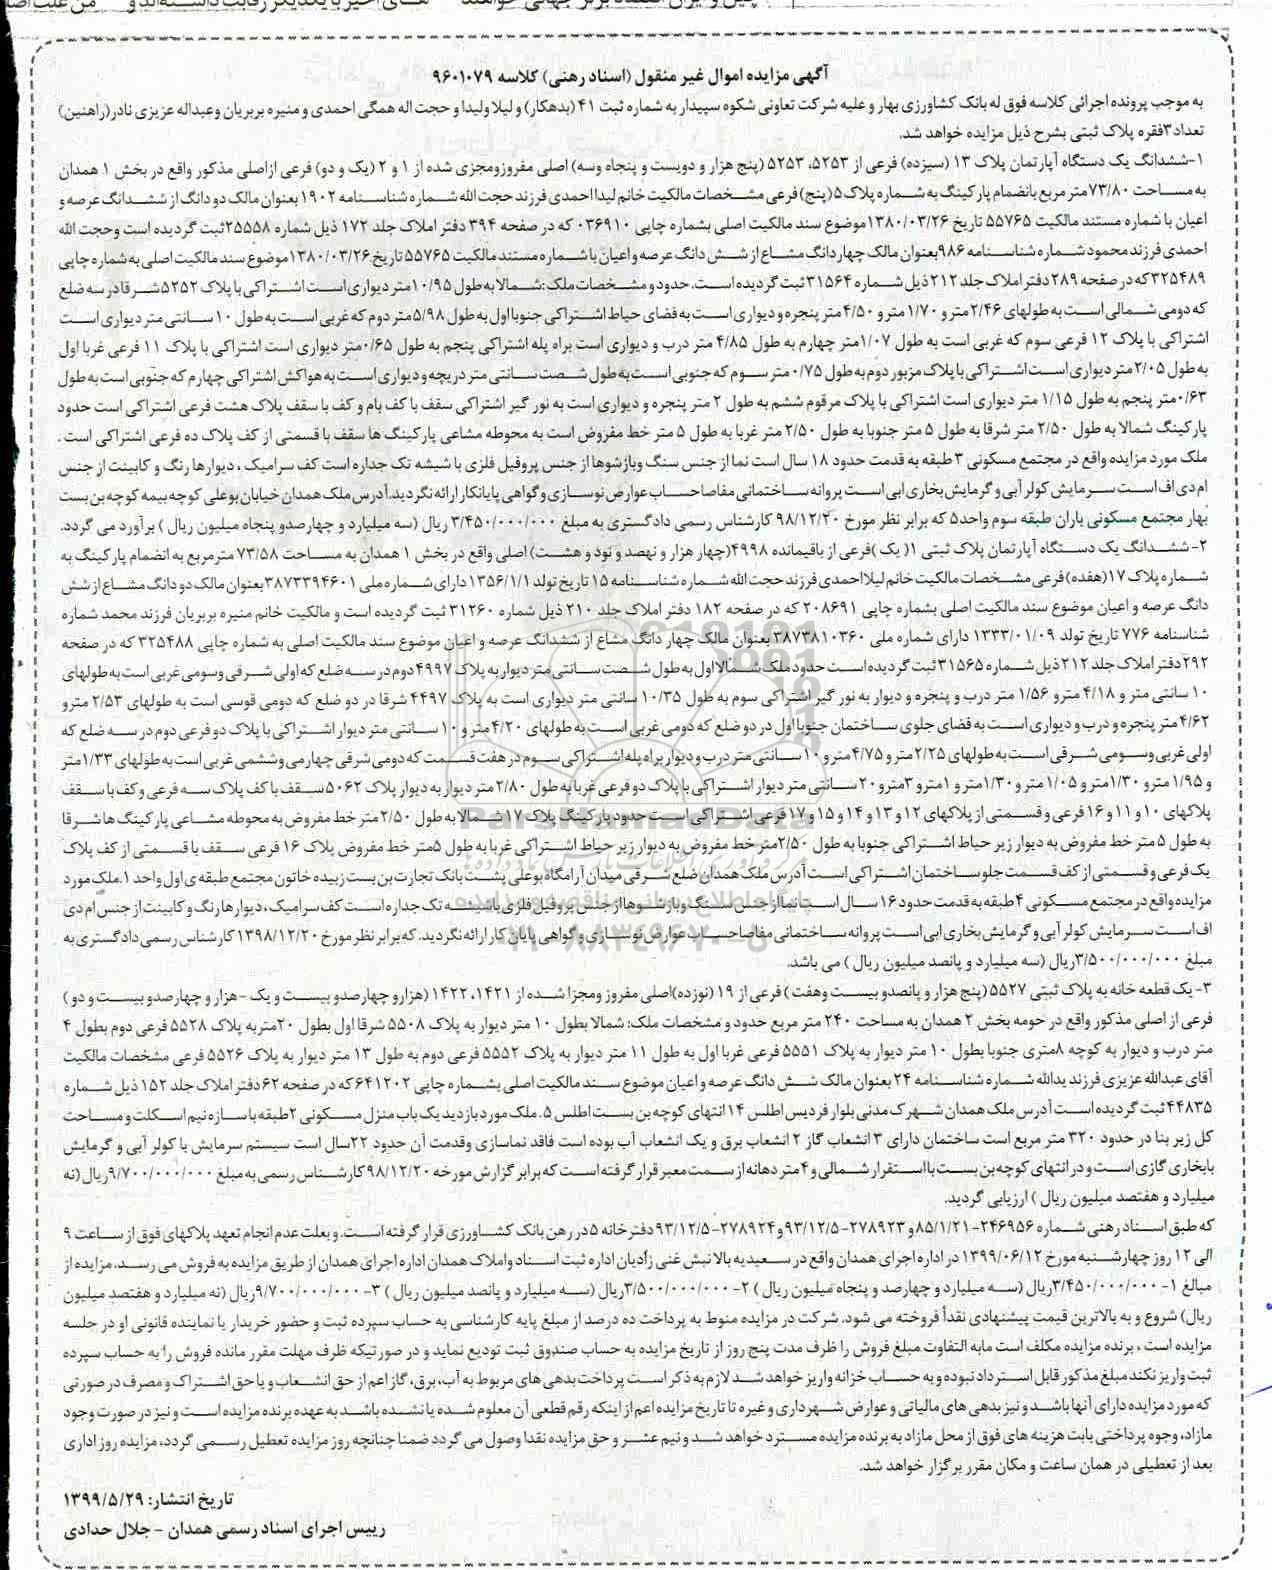 آگهی مزایده اموال غیر منقول (اسناد رهنی) کلاسه ۹۶۰۱۰۷۹
به موجب پرونده اجرائی کلاسه فوق له بانک کشاورزی بهار و علیه شرکت تعاونی شکوه سپیدار به شماره ثبت ۴۱ (بدهکار) و لیلا ولیدا و حجت اله همگی احمدی و منیره بربریان وعبداله عزیزی نادر(راهنین)
تعداد۳فقره پلاک ثبتی بشرح ذیل مزایده خواهد شد.
۱-ششدانگ یک دستگاه آپارتمان پلاک ۱۳ (سیزده) فرعی از ۵۲۵۳، ۵۲۵۳ (پنج هزار و دویست و پنجاه وسه) اصلی مفروزومجزی شده از ۱ و ۲ (یک و دو) فرعی ازاصلی مذکور واقع در بخش ۱ همدان
به مساحت ۷۳/۸۰متر مربع بانضمام پارکینگ به شماره پلاک ۵ (پنج) فرعی مشخصات مالکیت خانم لیدا احمدی فرزند حجت الله شماره شناسنامه ۱۹۰۲ بعنوان مالک دو دانگ از ششدانگ عرصه و
اعیان با شماره مستند مالکیت ۵۵۷۶۵ تاریخ ۱۳۸۰/۰۳/۲۶موضوع سند مالکیت اصلی بشماره چاپی ۰۳۶۹۱۰ که در صفحه ۳۹۴ دفتر املاک جلد ۱۷۲ ذیل شماره ۲۵۵۵۸ثبت گردیده است وحجت الله
احمدی فرزند محمود شماره شناسنامه ۹۸۶بعنوان مالک چهار دانگ مشاع از شش دانگ عرصه و اعیان با شماره مستند مالکیت ۵۵۷۶۵ تاریخ۱۳۸۰/۰۳/۲۶موضوع سند مالکیت اصلی به شماره چاپی
۳۲۵۴۸۹که در صفحه ۲۸۹دفتر املاک جلد ۲۱۲ ذیل شماره ۳۱۵۶۴ ثبت گردیده است. حدود و مشخصات ملک :شمالا به طول ۱۰/۹۵متر دیواری است اشتراکی با پلاک ۵۲۵۲ شرقا در سه ضلع
که دومی شمالی است به طولهای ۲/۴۶متر و ۱/۷۰متر و ۴/۵۰ متر پنجره و دیواری است به فضای حیاط اشتراکی جنوبا اول به طول ۵/۹۸متر دوم که غربی است به طول ۱۰ سانتی متر دیواری است
اشتراکی با پلاک ۱۲ فرعی سوم که غربی است به طول ۱/۰۷متر چهارم به طول ۴/۸۵ متر درب و دیواری است براه پله اشتراکی پنجم به طول ۰/۶۵متر دیواری است اشتراکی با پلاک ۱۱ فرعی غربا اول
به طول ۲/۰۵متر دیواری است اشتراکی با پلاک مزبور دوم به طول ۰/۷۵ متر سوم که جنوبی است به طول شصت سانتی متر دریچه و دیواری است به هواکش اشتراکی چهارم که جنوبی است به طول
۰/۶۳متر پنجم به طول ۱/۱۵ متر دیواری است اشتراکی با پلاک مرقوم ششم به طول ۲ متر پنجره و دیواری است به نور گیر اشتراکی سقف با کف بام و کف با سقف پلاک هشت فرعی اشتراکی است حدود
پارکینگ شمالا به طول ۲/۵۰ متر شرقا به طول ۵ متر جنوبا به طول ۲/۵۰ متر غربا به طول ۵ متر خط مفروض است به محوطه مشاعی پارکینگ ها سقف با قسمتی از کف پلاک ده فرعی اشتراکی است .
ملک مورد مزایده واقع در مجتمع مسکونی ۳ طبقه به قدمت حدود ۱۸ سال است نما از جنس سنگ وبازشوها از جنس پروفیل فلزی با شیشه تک جداره است کف سرامیک ، دیوارها رنگ و کابینت از جنس
ام دی اف است سرمایش کولر آبی و گرمایش بخاری ابی است پروانه ساختمانی مفاصا حساب عوارض نوسازی و گواهی پایانکار ارائه نگردید.آدرس ملک همدان خیابان بوعلی کوچه بیمه کوچه بن بست
بهار مجتمع مسکونی باران طبقه سوم واحد۵ که برابر نظر مورخ ۹۸/۱۲/۲۰ کارشناس رسمی دادگستری به مبلغ ۳/۴۵۰/۰۰۰/۰۰۰ ریال (سه میلیارد و چهارصدو پنجاه میلیون ریال ) برآورد می گردد.
۲- ششدانگ یک دستگاه آپارتمان پلاک ثبتی ۱( یک )فرعی از باقیمانده ۴۹۹۸(چهار هزار و نهصد و نود و هشت) اصلی واقع در بخش ۱ همدان به مساحت ۷۳/۵۸ مترمربع به انضمام پارکینگ به
شماره پلاک ۱۷(هفده) فرعی مشخصات مالکیت خانم لیلا احمدی فرزند حجت الله شماره شناسنامه ۱۵ تاریخ تولد ۱۳۵۶/۱/۱ دارای شماره ملی ۳۸۷۳۳۹۴۶۰۱بعنوان مالک دو دانگ مشاع از شش
دانگ عرصه و اعیان موضوع سند مالکیت اصلی بشماره چاپی ۲۰۸۶۹۱ که در صفحه ۱۸۲ دفتر املاک جلد ۲۱۰ ذیل شماره ۳۱۲۶۰ ثبت گردیده است و مالکیت خانم منیره بربریان فرزند محمد شماره
شناسنامه ۷۷۶ تاریخ تولد ۱۳۳۳/۰۱/۰۹ دارای شماره ملی ۳۸۷۳۸۱۰۳۶۰ بعنوان مالک چهار دانگ مشاع از ششدانگ عرصه و اعیان موضوع سند مالکیت اصلی به شماره چاپی ۳۲۵۴۸۸ که در صفحه
۲۹۲ دفتر املاک جلد ۲۱۲ ذیل شماره ۳۱۵۶۵ ثبت گردیده است حدود ملک شمالا اول به طول شصت سانتی متر دیوار به پلاک ۴۹۹۷ دوم در سه ضلع که اولی شرقی وسومی غربی است به طولهای
۱۰ سانتی متر و ۴/۱۸ مترو ۱/۵۶ متر درب و پنجره و دیوار به نور گیر اشتراکی سوم به طول ۱۰/۳۵ سانتی متر دیواری است به پلاک ۴۴۹۷ شرقا در دو ضلع که دومی قوسی است به طولهای ۲/۵۳ مترو
۴/۶۲ متر پنجره و درب و دیواری است به فضای جلوی ساختمان جنوبا اول در دو ضلع که دومی غربی است به طولهای ۴/۲۰متر و ۱۰ سانتی متر دیوار اشتراکی با پلاک دو فرعی دوم در سه ضلع که
اولی غربی وسومی شرقی است به طولهای ۲/۲۵متر و ۴/۷۵مترو ۱۰ سانتی متر درب و دیوار براه پله اشتراکی سوم در هفت قسمت که دومی شرقی چهارمی وششمی غربی است به طولهای ۱/۳۳متر
و ۱/۹۵ مترو ۱/۳۰مترو ۱/۰۵ مترو ۱/۳۰متر و ۱مترو ۳مترو ۲۰ سانتی متر دیوار اشتراکی با پلاک دو فرعی غربا به طول ۲/۸۰ متر دیوار به دیوار پلاک ۵۰۶۲ سقف با کف پلاک سه فرعی و کف با سقف
پلاکهای ۱۰ و ۱۱ و ۱۶ فرعی و قسمتی از پلاکهای ۱۲ و ۱۳ و ۱۴ و ۱۵ و ۱۷ فرعی اشتراکی است حدود پارکینگ پلاک ۱۷ شمالا به طول ۲/۵۰ متر خط مفروض به محوطه مشاعی پارکینگ ها شرقا
به طول ۵ متر خط مفروض به دیوار زیر حیاط اشتراکی جنوبا به طول ۲/۵۰متر خط مفروض به دیوار زیر حیاط اشتراکی غربا به طول ۵متر خط مفروض پلاک ۱۶ فرعی سقف با قسمتی از کف پلاک
یک فرعی و قسمتی از کف قسمت جلو ساختمان اشتراکی است آدرس ملک همدان ضلع شرقی میدان آرامگاه بوعلی پشت بانک تجارت بن بست زبیده خاتون مجتمع طبقه ی اول واحد ۱.ملک مورد
مزایده واقع در مجتمع مسکونی ۴ طبقه به قدمت حدود ۱۶ سال است نما از جنس سنگ وبازشوها از جنس پروفیل فلزی با شیشه تک جداره است کف سرامیک، دیوارها رنگ و کابینت از جنس ام دی
اف است سرمایش کولر آبی و گرمایش بخاری ابی است پروانه ساختمانی مفاصا حساب عوارض نوسازی و گواهی پایان کار ارائه نگردید. که برابر نظر مورخ ۱۳۹۸/۱۲/۲۰ کارشناس رسمی دادگستری به
مبلغ ۳/۵۰۰/۰۰۰/۰۰۰ریال (سه میلیارد و پانصد میلیون ریال ) می باشد.
۳- یک قطعه خانه به پلاک ثبتی ۵۵۲۷ (پنج هزار و پانصدو بیست وهفت ) فرعی از ۱۹ (نوزده)اصلی مفروز ومجزا شده از ۱۴۲۱، ۱۴۲۲ (هزارو چهارصدو بیست و یک -هزار و چهارصدو بیست و دو )
فرعی از اصلی مذکور واقع در حومه بخش ۲ همدان به مساحت ۲۴۰ متر مربع حدود و مشخصات ملک: شمالا بطول ۱۰ متر دیوار به پلاک ۵۵۰۸ شرقا اول بطول ۲۰متربه پلاک ۵۵۲۸ فرعی دوم بطول ۴
متر درب و دیوار به کوچه ۸متری جنوبا بطول ۱۰ متر دیوار به پلاک ۵۵۵۱ فرعی غربا اول به طول ۱۱ متر دیوار به پلاک ۵۵۵۲ فرعی دوم به طول ۱۳ متر دیوار به پلاک ۵۵۲۶ فرعی مشخصات مالکیت
آقای عبدالله عزیزی فرزند یدالله شماره شناسنامه ۲۴ بعنوان مالک شش دانگ عرصه و اعیان موضوع سند مالکیت اصلی بشماره چاپی ۶۴۱۲۰۲که در صفحه ۶۲دفتر املاک جلد ۱۵۲ ذیل شماره
۴۴۸۳۵ ثبت گردیده است آدرس ملک همدان شهرک مدنی بلوار فردیس اطلس ۱۴ انتهای کوچه بن بست اطلس ۵. ملک مورد بازدید یک باب منزل مسکونی ۲طبقه با سازه نیم اسکلت و مساحت
کل زیر بنا در حدود ۳۲۰ متر مربع است ساختمان دارای ۳ انشعاب گاز ۲ انشعاب برق و یک انشعاب آب بوده است فاقد نماسازی وقدمت آن حدود ۲۲سال است سیستم سرمایش با کولر آبی و گرمایش
بابخاری گازی است و در انتهای کوچه بن بست با استقرار شمالی و ۴ متر دهانه از سمت معبر قرار گرفته است که برابر گزارش مورخه ۹۸/۱۲/۲۰ کارشناس رسمی به مبلغ ۹/۷۰۰/۰۰۰/۰۰۰ریال (نه
میلیارد و هفتصد میلیون ریال ) ارزیابی گردید.
که طبق اسناد رهنی شماره ۲۴۶۹۵۶-۸۵/۱/۲۱ و ۲۷۸۹۲۳-۹۳/۱۲/۵ و ۲۷۸۹۲۴-۹۳/۱۲/۵ دفتر خانه ۵در رهن بانک کشاورزی قرار گرفته است. و بعلت عدم انجام تعهد پلاکهای فوق از ساعت ۹
الی ۱۲ روز چهارشنبه مورخ ۱۳۹۹/۰۶/۱۲ در اداره اجرای همدان واقع در سعیدیه بالا نبش غنی زادیان اداره ثبت اسناد واملاک همدان اداره اجرای همدان از طریق مزایده به فروش می رسد. مزایده از
مبالغ ۱- ۳/۴۵۰/۰۰۰/۰۰۰ریال (سه میلیارد و چهارصد و پنجاه میلیون ریال ) ۲- ۳/۵۰۰/۰۰۰/۰۰۰ریال (سه میلیارد و پانصد میلیون ریال ) ۳- ۹/۷۰۰/۰۰۰/۰۰۰ریال (نه میلیارد و هفتصد میلیون
ریال) شروع و به بالاترین قیمت پیشنهادی نقداً فروخته می شود. شرکت در مزایده منوط به پرداخت ده درصد از مبلغ پایه کارشناسی به حساب سپرده ثبت و حضور خریدار یا نماینده قانونی او در جلسه
مزایده است ، برنده مزایده مکلف است مابه التفاوت مبلغ فروش را ظرف مدت پنج روز از تاریخ مزایده به حساب صندوق ثبت تودیع نماید و در صورتیکه ظرف مهلت مقرر مانده فروش را به حساب سپرده
ثبت واریز نکند مبلغ مذکور قابل استرداد نبوده و به حساب خزانه واریز خواهد شد لازم به ذکر است پرداخت بدهی های مربوط به آب، برق، گاز اعم از حق انشعاب و یا حق اشتراک و مصرف در صورتی
که مورد مزایده دارای آنها باشد و نیز بدهی های مالیاتی و عوارض شهرداری و غیره تا تاریخ مزایده اعم از اینکه رقم قطعی آن معلوم شده یا نشده باشد به عهده برنده مزایده است و نیز در صورت وجود
مازاد، وجوه پرداختی بابت هزینه های فوق از محل مازاد به برنده مزایده مسترد خواهد شد و نیم عشر و حق مزایده نقدا وصول می گردد ضمنا چنانچه روز مزایده تعطیل رسمی گردد، مزایده روز اداری
بعد از تعطیلی در همان ساعت و مکان مقرر برگزار خواهد شد.
تاریخ انتشار: ۱۳۹۹/۵/۲۹
رییس اجرای اسناد رسمی همدان - جلال حدادی
ParsNamadData